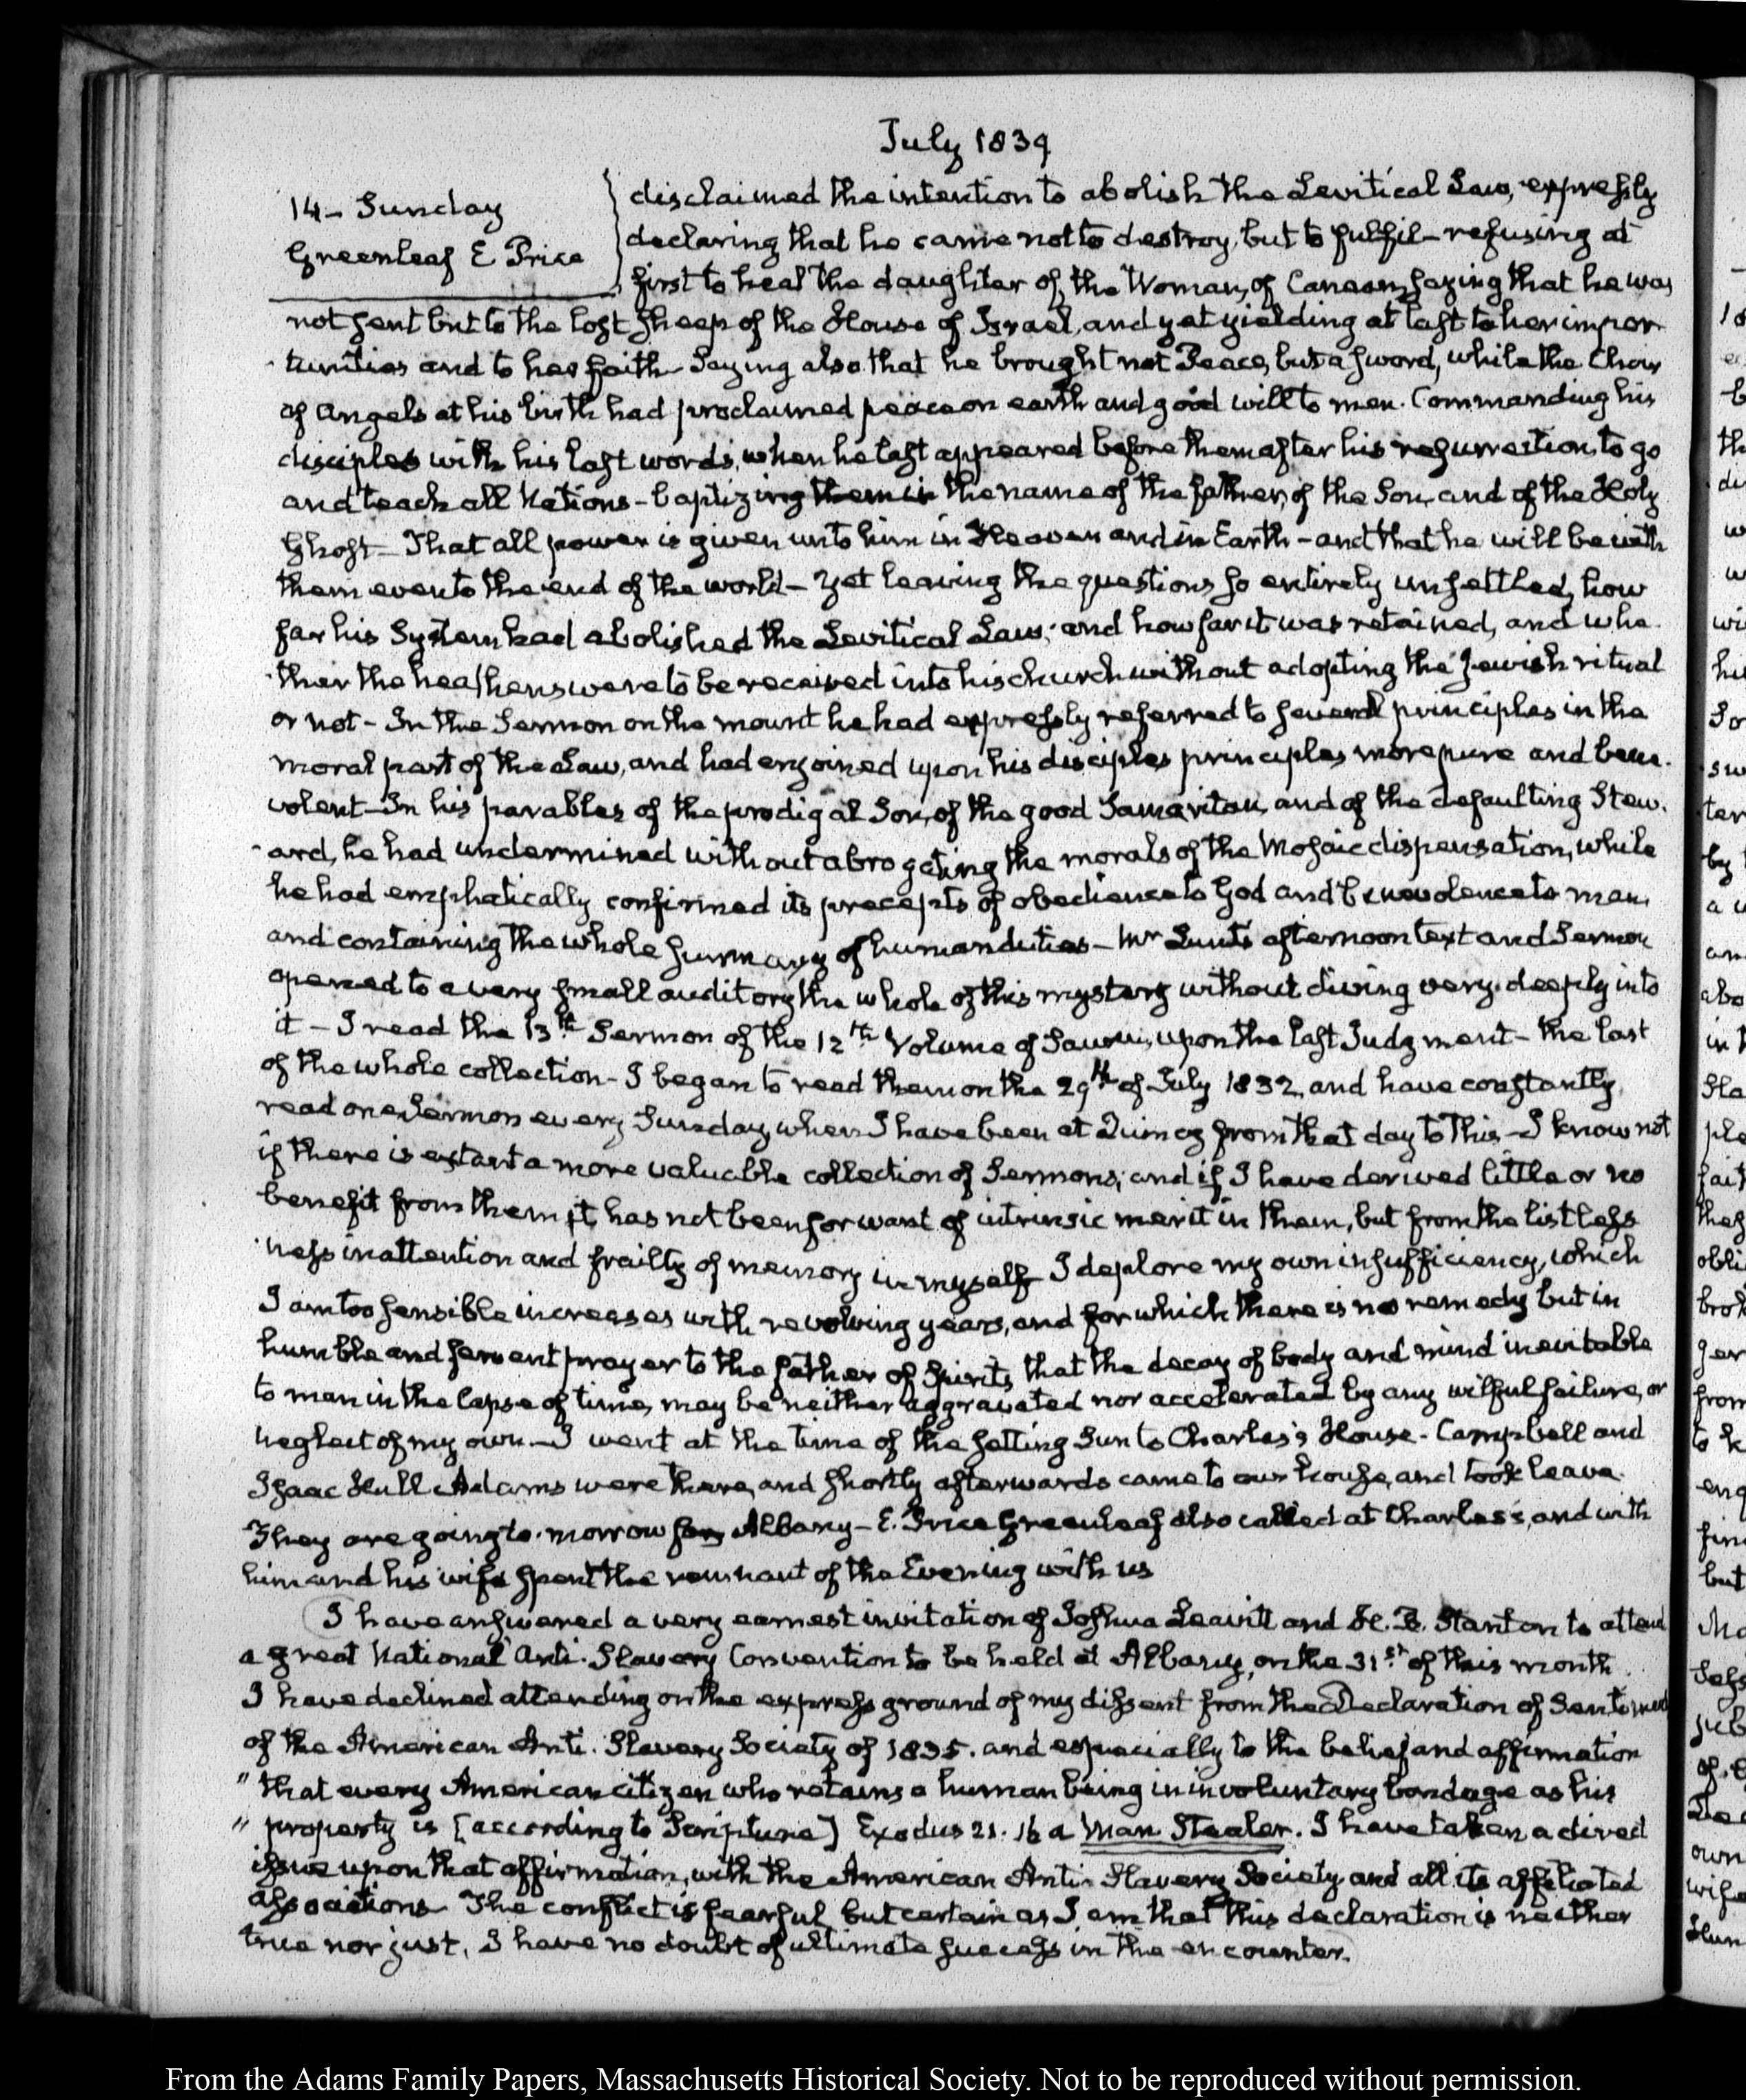 July 1839
14- Sunday
Greenleaf E Price
disclaimed the intention to abolish the Levitical Law, expressly
declaring that he came not to destroy, but to fulfil- refusing at
first to heal the daughter of the Woman, of Canaan, saying that he was
not sent but to the lost sheep of the House of Israel, and yet yielding at last to her impor-
tunities and to her faith- Saying also that he brought not Peace, but a sword, while the Choir
of angels at his birth had proclaimed peace on earth and good will to men. Commanding his
disciples with his last words, when he last appeared before them after his resurrection, to go
and teach all Nations- baptizing them in the name of the father, of the Son, and of the Holy
Ghost- That all power is given unto him in Heaven and in Earth- and that he will be with
them even to the end of the world- Yet leaving the questions so entirely unsettled, how
far his System had abolished the Levitical Law; and how far it was retained, and whe-
ther the heathens were to be received into his church without adopting the Jewish ritual
or not- In the Sermon on the mount he had expressly referred to several principles in the
moral part of the Law, and had enjoined upon his disciples principles more pure and bene-
volent- In his parables of the prodigal Son, of the good Samaritan, and of the defaulting Stew-
ard, he had undermined without abrogating the morals of the Mosaic dispensation, while
he had emphatically confirmed its precepts of obedience to God and benevolence to man,
and containing the whole summary of human duties- Mr Lunt's afternoon text and Sermon
opened to a very small auditory the whole of this mystery without diving very deeply into
it- I read the 13th Sermon of the 12th Volume of Saurin, upon the last Judgment- the last
of the whole collection- I began to read them on the 29th of July 1832, and have constantly
read one Sermon every Sunday when I have been at Quincy from that day to this- I know not
if there is extant a more valuable collection of Sermons; and if I have derived little or no
benefit from them, it has not been for want of intrinsic merit in them, but from the listless-
ness inattention and frailty of memory in myself I deplore my own insufficiency, which
I am too sensible increases with revolving years, and for which there is no remedy but in
humble and fervent prayer to the father of Spirits, that the decay of body and mind inevitable
to man in the lapse of time, may be neither aggravated nor accelerated by any wilful failure, or
neglect of my own- I went at the time of the setting Sun to Charles's House- Campbell and
Isaac Hull Adams were there, and shortly afterwards came to our house, and took leave.
They are going to-morrow for Albany- E. Price Greenleaf also called at Charles's, and with
him and his wife spent the remnant of the Evening with us
I have answered a very earnest invitation of Joshua Leavitt and H. B. Stanton to attend
a great National Anti-Slavery Convention to be held at Albany, on the 31st of this month.
I have declined attending on the express ground of my dissent from the Declaration of Sentiment
of the American Anti-Slavery Society of 1835. and especially to the belief and affirmation
"that every American citizen who retains a human being in involuntary bondage as his
" property is [according to Scripture] Exodus 21. 16 a Man Stealer. I have taken a direct
issue upon that affirmation, with the American Anti-Slavery Society and all its affiliated
associations- The conflict is fearful, but certain as I am that this declaration is neither
true nor just, I have no doubt of ultimate success in the encounter.
From the Adams Family Papers, Massachusetts Historical Society. Not to be reproduced without permission.